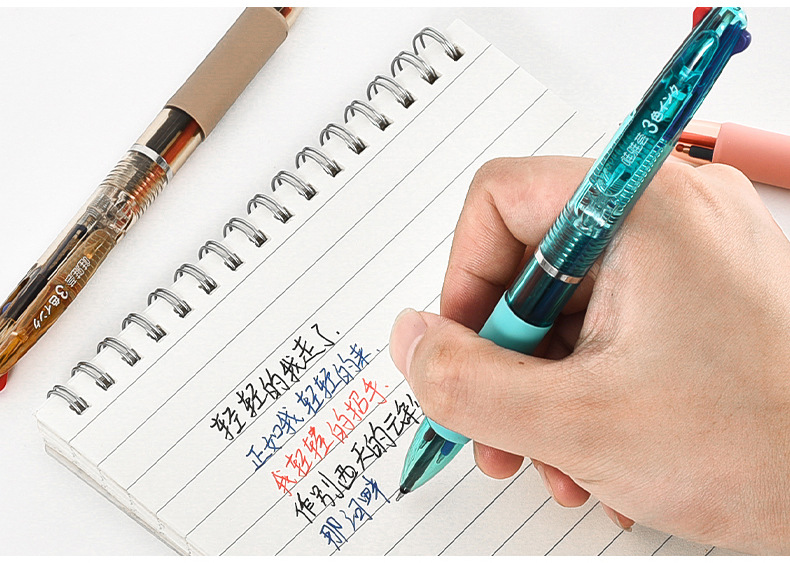 轻轻的我走了.
正如我轻轻的来.
我轻轻的招手.
作别西天的云
那河畔
3色インク
3色インク